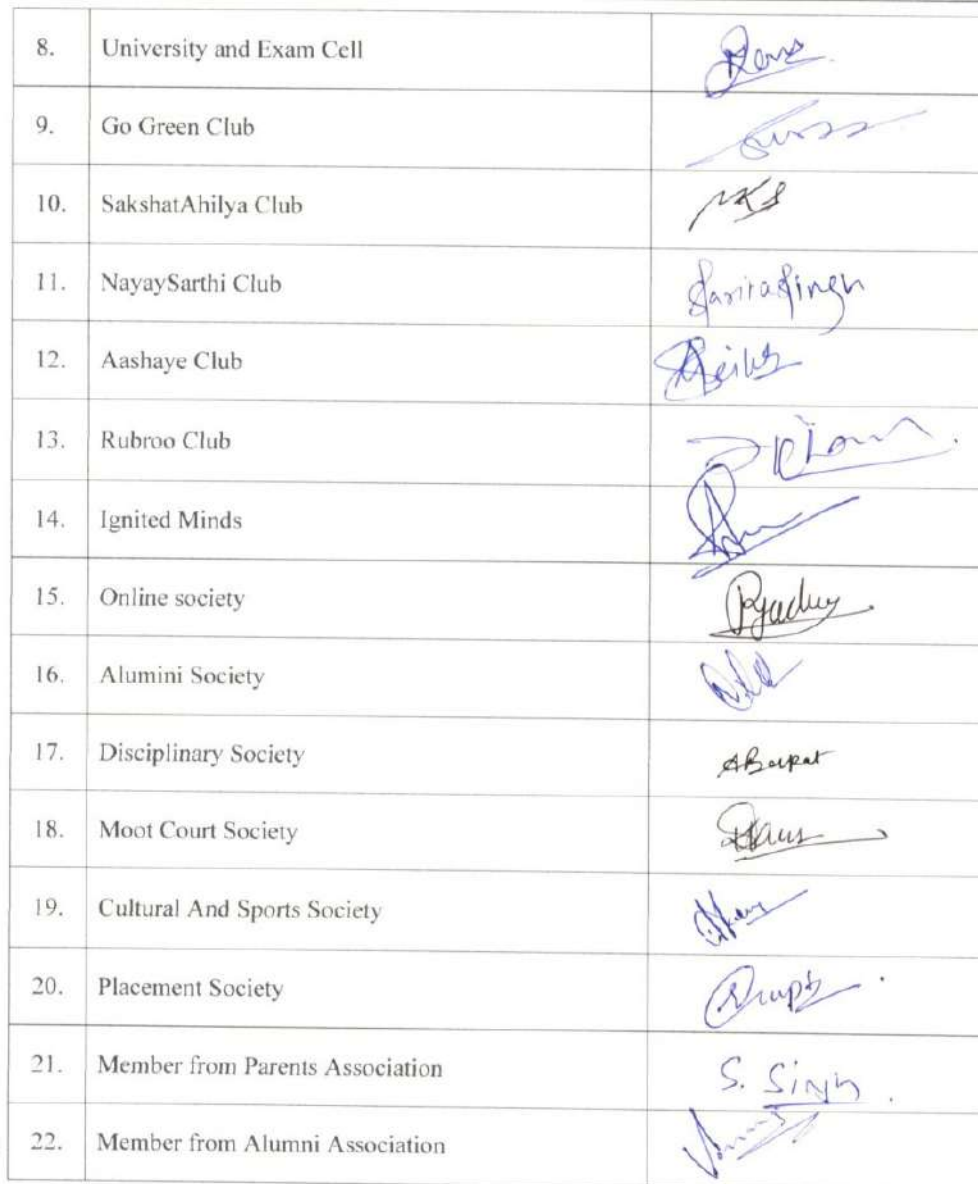 8. University and Exam Cell
9. Go Green Club
10. SakshatAhilya Club
11. NayaySarthi Club Sarita Singh
12. Aashaye Club
13. Rubroo Club
14. Ignited Minds
15. Online society
16. Alumini Society
17. Disciplinary Society
18. Moot Court Society
19. Cultural And Sports Society
20. Placement Society
21. Member from Parents Association S. Singh
22. Member from Alumni Association